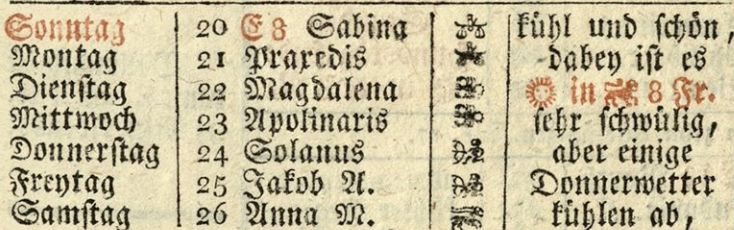 Sonntag 20 E 8 Sabina kühl und schön,
Montag 21 Praxedis dabey ist es
Dienstag 22 Magdalena in 8 Fr.
Mittwoch 23 Apolinaris sehr schwülig,
Donnerstag 24 Solanus aber einige
Freytag 25 Jakob A. Donnerwetter
Samstag 26 Anna M. kühlen ab,